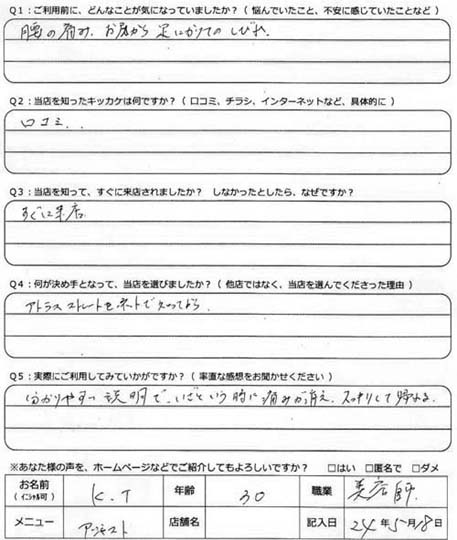 Q1：ご利用前に、どんなことが気になっていましたか？（ 悩んでいたこと、不安に感じていたことなど ）
腰の痛み、お尻から 足にかけての しびれ。
Q2：当店を知ったキッカケは何ですか？（ 口コミ、チラシ、インターネットなど、具体的に ）
口コミ、
Q3：当店を知って、すぐに来店されましたか？ しなかったとしたら、なぜですか？
すぐに来店
Q4：何が決め手となって、当店を選びましたか？（ 他店ではなく、当店を選んでくださった理由 ）
アトラス ストレートをネットで知ってから
Q5：実際にご利用してみていかがですか？（ 率直な感想をお聞かせください ）
分かりやすい 説明で、いざという時に痛みが消え、スッキリして帰れる。
※あなた様の声を、ホームページなどでご紹介してもよろしいですか？ □はい □匿名で □ダメ
お名前（イニシャル可） K.T 年齢 30 職業 美容師
メニュー アジャスト 店舗名 記入日 24年5月18日